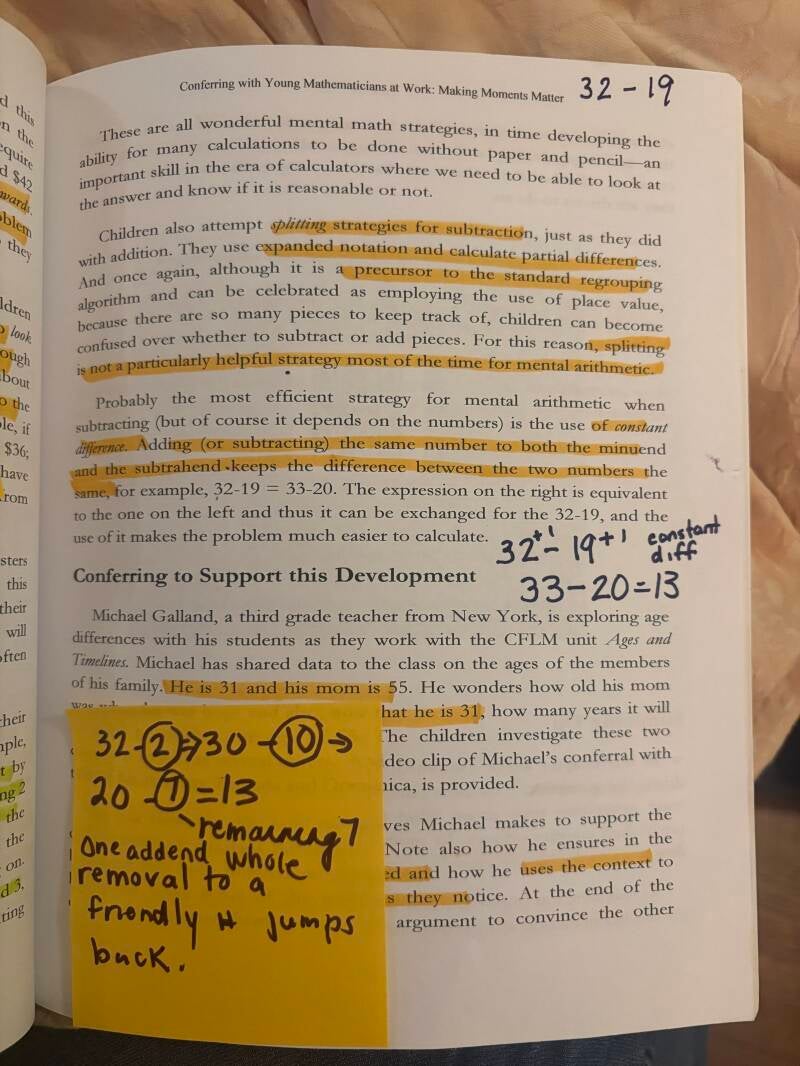 d this
n the
equire
d $42
wards.
oblem
they
ldren
o look
ough
bout
o the
ple, if
$36;
have
rom
sters
this
their
will
often
their
mple,
t by
ng 2
the
the
on.
d 3,
ting
Conferring with Young Mathematicians at Work: Making Moments Matter
32 - 19
These are all wonderful mental math strategies, in time developing the
ability for many calculations to be done without paper and pencil—an
important skill in the era of calculators where we need to be able to look at
the answer and know if it is reasonable or not.
Children also attempt splitting strategies for subtraction, just as they did
with addition. They use expanded notation and calculate partial differences.
And once again, although it is a precursor to the standard regrouping
algorithm and can be celebrated as employing the use of place value,
because there are so many pieces to keep track of, children can become
confused over whether to subtract or add pieces. For this reason, splitting
is not a particularly helpful strategy most of the time for mental arithmetic.
Probably the most efficient strategy for mental arithmetic when
subtracting (but of course it depends on the numbers) is the use of constant
difference. Adding (or subtracting) the same number to both the minuend
and the subtrahend keeps the difference between the two numbers the
same, for example, 32-19 = 33-20. The expression on the right is equivalent
to the one on the left and thus it can be exchanged for the 32-19, and the
use of it makes the problem much easier to calculate.
32+1 - 19+1 constant
diff
33-20=13
Conferring to Support this Development
Michael Galland, a third grade teacher from New York, is exploring age
differences with his students as they work with the CFLM unit Ages and
Timelines. Michael has shared data to the class on the ages of the members
of his family. He is 31 and his mom is 55. He wonders how old his mom
hat he is 31, how many years it will
The children investigate these two
deo clip of Michael's conferral with
nica, is provided.
ves Michael makes to support the
Note also how he ensures in the
ed and how he uses the context to
s they notice. At the end of the
argument to convince the other
32-2→30-10→
20-7=13
remaining 7
One addend whole
removal to a
friendly # jumps
back.